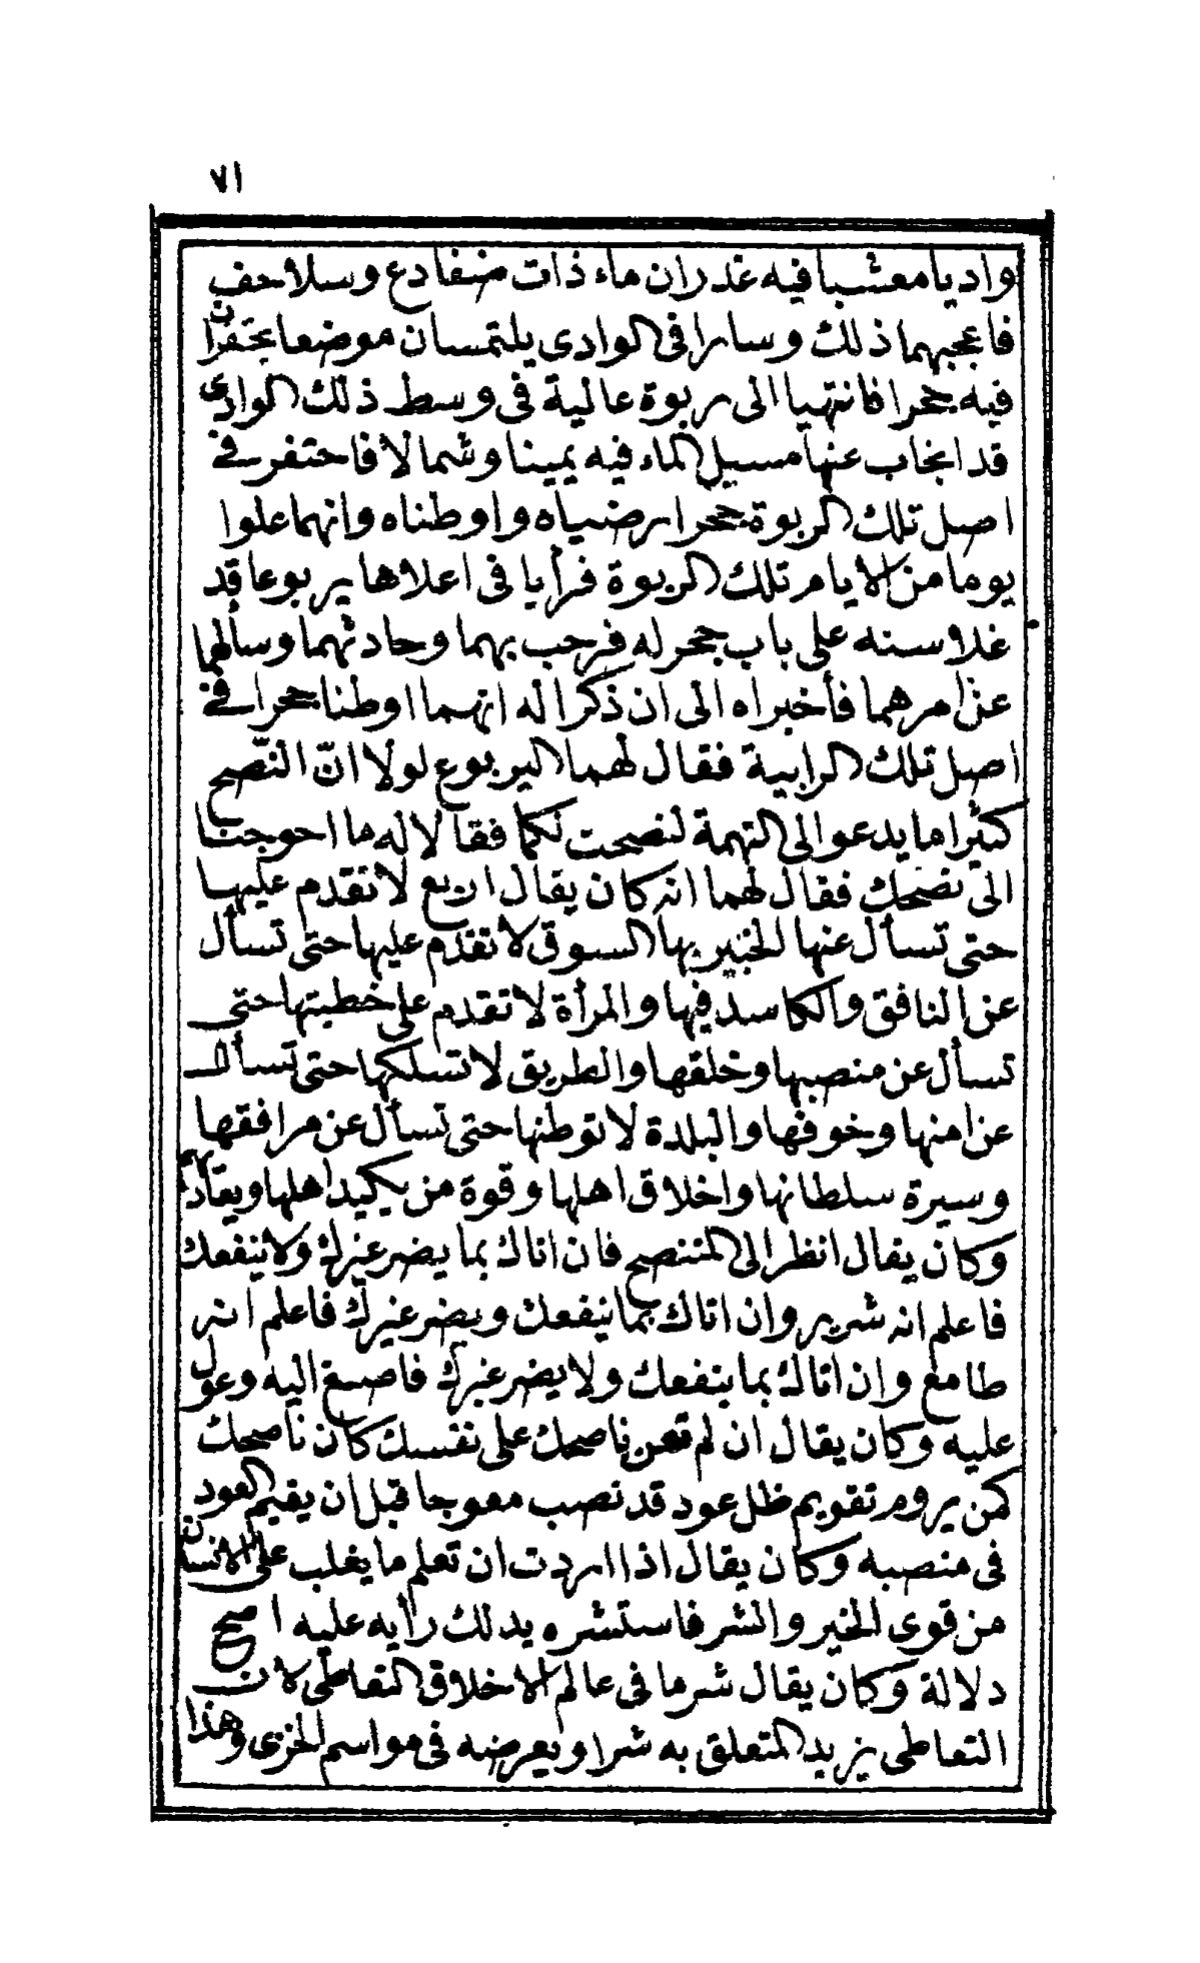 ٧١
واديا معشبا فيه غدران ماء ذات ضفادع وسلاحف
فاعجبهما ذلك وسارا فى الوادى يلتمسان موضعا يحتفران
فيه جحرا فانتهيا الى ربوة عالية فى وسط ذلك الوادى
قد انجاب عنها مسيل الماء فيه يمينا وشمالا فاحتفر فى
اصل تلك الربوة جحرا رضياه واوطناه وانهما علوا
يوما من الايام تلك الربوة فرأيا فى اعلاها يربوعا قد
علا سنه على باب جحر له فرحب بهما وحادثهما وسألهما
عن امرهما فأخبراه الى ان ذكرا له انهما اوطنا جحرا فى
اصل تلك الرابية فقال لهما اليربوع لولا انّ النّصح
كثيرا ما يدعو الى التهمة لنصحت لكما فقالا له ما احوجنا
الى نصحك فقال لهما انه كان يقال اربع لا تقدم عليها
حتى تسأل عنها الخبير بها السوق لا تقدم عليها حتى تسأل
عن النافق والكاسد فيها والمرأة لا تقدم على خطبتها حتى
تسأل عن منصبها وخلقها والطريق لا تسلكها حتى تسأل
عن امنها وخوفها والبلدة لا توطنها حتى تسأل عن مرافقها
وسيرة سلطانها واخلاق اهلها وقوة من يكيد اهلها ويعاديهم
وكان يقال انظر الى المتنصح فان اتاك بما يضر غيرك ولا ينفعك
فاعلم انه شرير وان اتاك بما ينفعك ويضر غيرك فاعلم انه
طامع وان اتاك بما ينفعك ولا يضر غيرك فاصغ اليه وعول
عليه وكان يقال ان لم تعن ناصحك على نفسك كان ناصحك
كمن يروم تقويم ظل عود قد نصب معوجا قبل ان يقيم العود
فى منصبه وكان يقال اذا اردت ان تعلم ما يغلب على الانسان
من قوى الخير والشر فاستشره يدلك رأيه عليه اصح
دلالة وكان يقال شر ما فى عالم الاخلاق التعاطى لان
التعاطى يزيد المتعلق به شرا ويعرضه فى مواسم الخزى وهذا